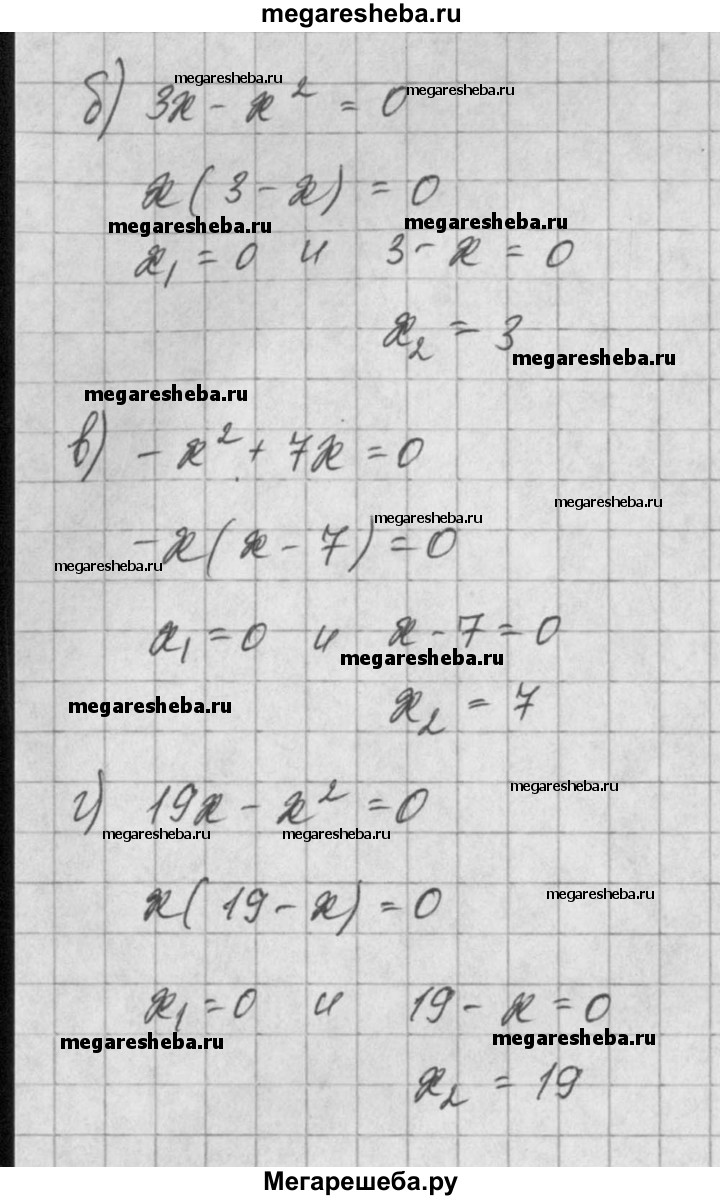 megaresheba.ru
megaresheba.ru
б) 3x - x² = 0 megaresheba.ru
x(3 - x) = 0
megaresheba.ru megaresheba.ru
x₁ = 0 и 3 - x = 0
x₂ = 3
megaresheba.ru
megaresheba.ru
в) - x² + 7x = 0
megaresheba.ru
megaresheba.ru
-x(x - 7) = 0
megaresheba.ru
x₁ = 0 и x - 7 = 0
megaresheba.ru
megaresheba.ru x₂ = 7
megaresheba.ru
г) 19x - x² = 0
megaresheba.ru megaresheba.ru
x(19 - x) = 0 megaresheba.ru
x₁ = 0 и 19 - x = 0
megaresheba.ru megaresheba.ru
x₂ = 19
Мегарешеба.ру